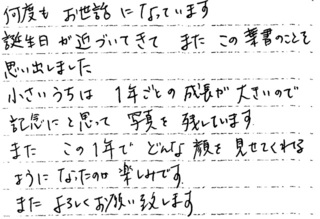 何度も お世話 になっています
誕生日 が近づいてきて また この 葉書のことを
思い出しました
小さいうちは 1年ごとの 成長が 大きいので
記念に と思って 写真を 残しています
また この1年で どんな 顔を 見せてくれる
ようになったのか 楽しみです
また よろしく お願い致します